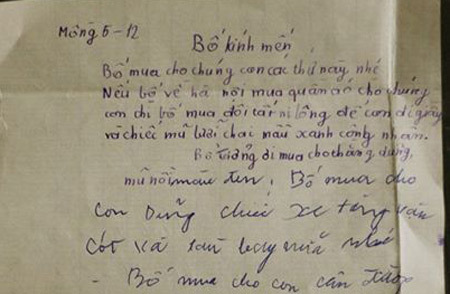 Mồng 5-12
Bố kính mến
Bố mua cho chúng con các thứ này nhé
Nếu bố về hà nội mua quần áo cho chúng
con thì bố mua đôi tất ni lông để con đi giầy
và chiếc mũ lưỡi chai màu xanh công nhân.
Bố xuống đi mua cho thằng dũng,
mũ nồi màu đen, Bố mua cho
con Dũng chiếc xe tăng
cót và tàu bay nữa nhé
- Bố mua cho con